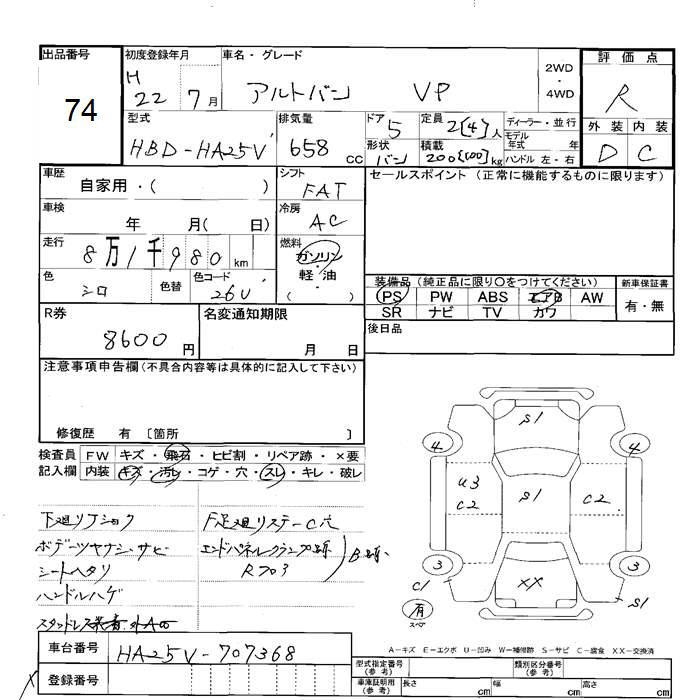 出品番号
74
初度登録年月
H
22 7月
車名・グレード
アルトバン VP
2WD
・
4WD
評価点
R
外装 内装
D C
型式
HBD-HA25V
排気量
658 cc
ドア 5
形状 バン
定員 2[4]人
積載 200[100]kg
ディーラー・並行
モデル
年式 年
ハンドル 左・右
車歴
自家用・( )
シフト
FAT
セールスポイント (正常に機能するものに限ります)
車検
年 月( 日)
冷房
AC
走行
8万1千980 km
燃料
ガソリン
・
軽・油
( )
色
シロ
色替
色コード
26U
装備品 (純正品に限り○をつけてください)
PS PW ABS エアB AW
SR ナビ TV カワ
新車保証書
有・無
R券
8600円
名変通知期限
月 日
後日品
注意事項申告欄(不具合内容等は具体的に記入して下さい)
修復歴 有 〔箇所 〕
検査員
記入欄
FW キズ・飛石・ヒビ割・リペア跡・×要
内装 キズ・汚レ・コゲ・穴・スレ・キレ・破レ
下廻り
シートヘタリ
ハンドルハゲ
F足廻リステーC穴
R703
S1
4
4
U3
C2
S1
C2
3
3
XX
C1
S1
有
スペア
A-キズ E-エクボ U-凹み W-補修跡 S-サビ C-腐食 XX-交換済
車台番号
HA25V-707368
登録番号
型式指定番号
(参考)
類別区分番号
(参考)
車庫証明用
(参考)
長さ cm
幅 cm
高さ cm